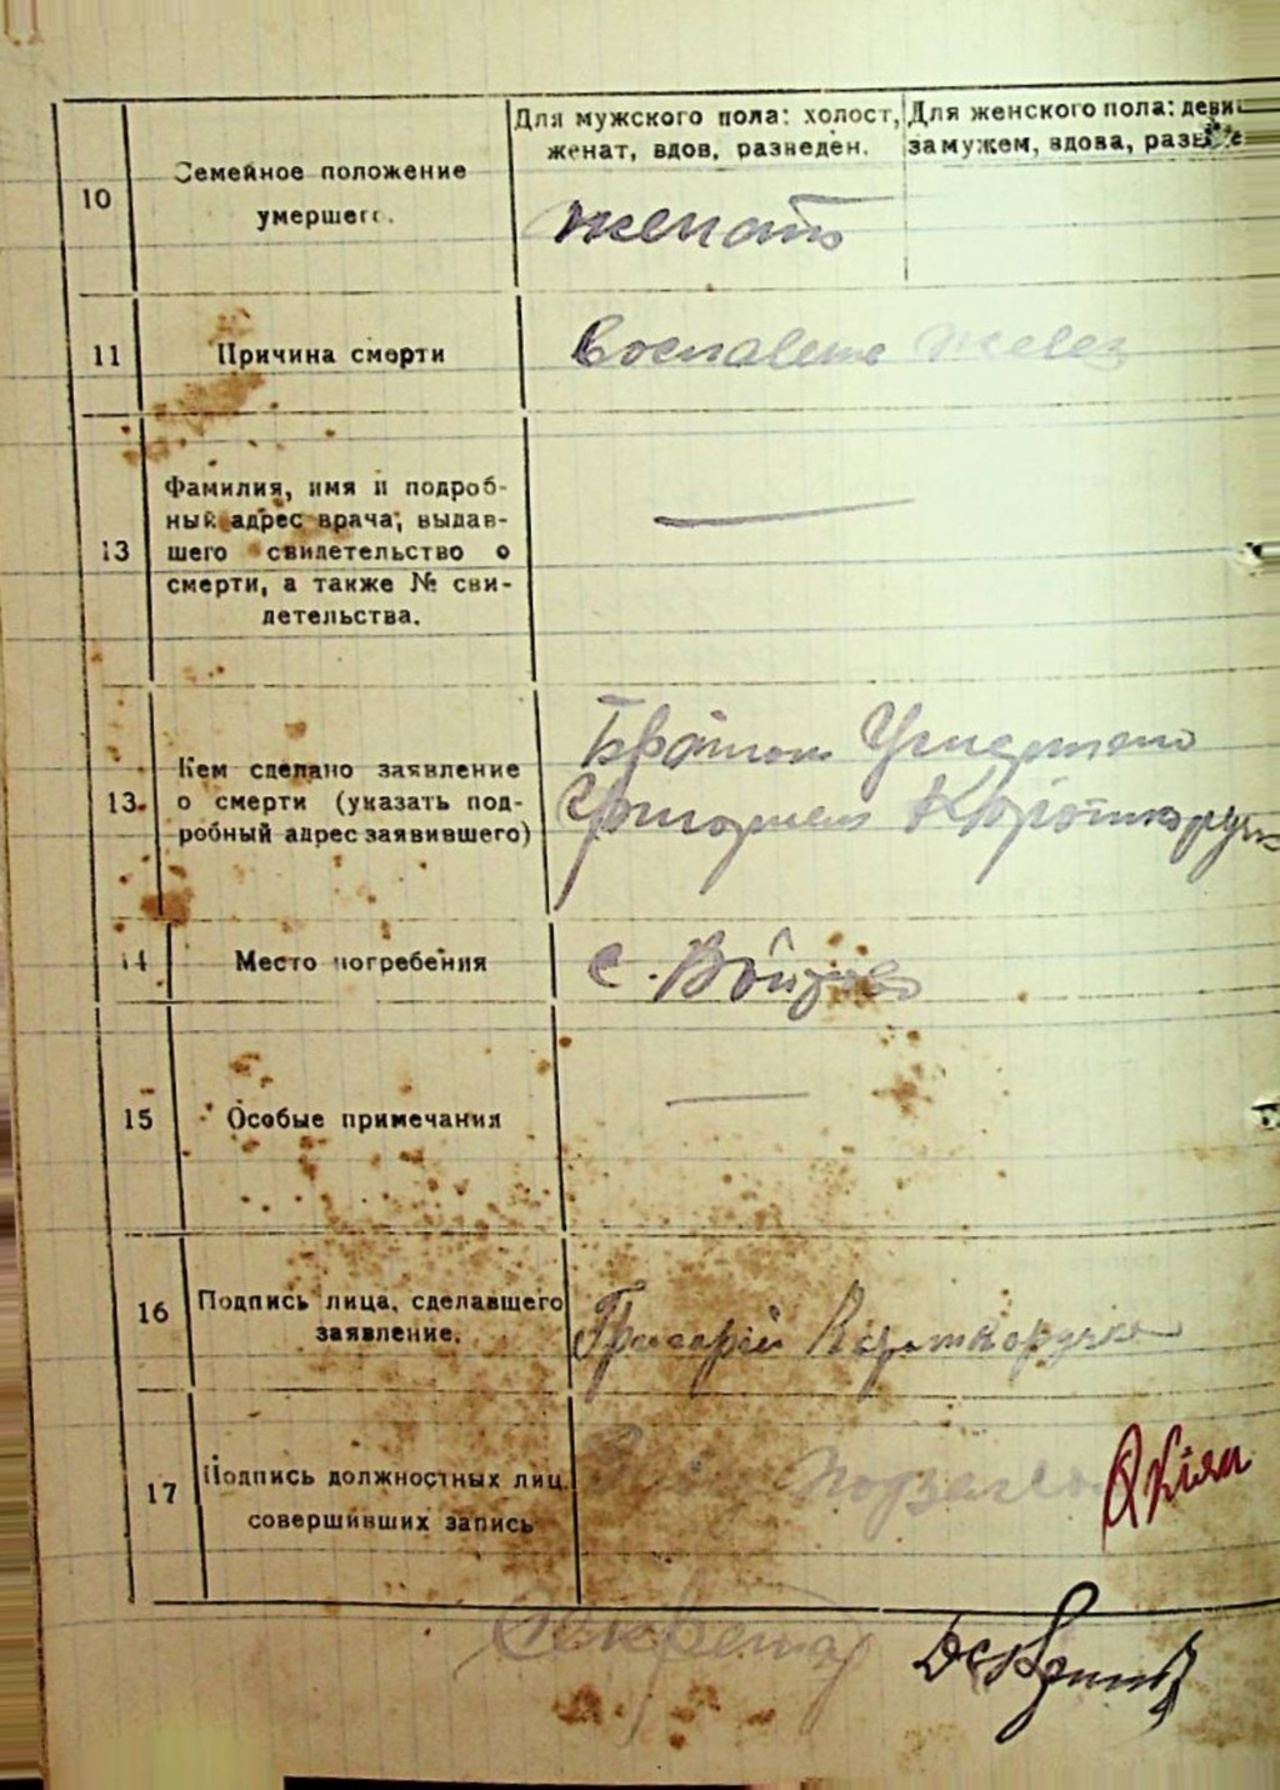 10
Семейное положение
умершего.
Для мужского пола: холост,
женат, вдов, разведен.
Для женского пола: деви
замужем, вдова, разве
женатъ
11
Причина смерти
Воспаление желез
13
Фамилия, имя и подроб-
ный адрес врача, выдав-
шего свидетельство о
смерти, а также № сви-
детельства.
13.
Кем сделано заявление
о смерти (указать под-
робный адрес заявившего)
Братом Умершаго
Григорием Короткоручко
14
Место погребения
с.
15
Особые примечания
16
Подпись лица, сделавшего
заявление.
Григорій Короткоручко
17
Подпись должностных лиц,
совершивших запись
Секретар